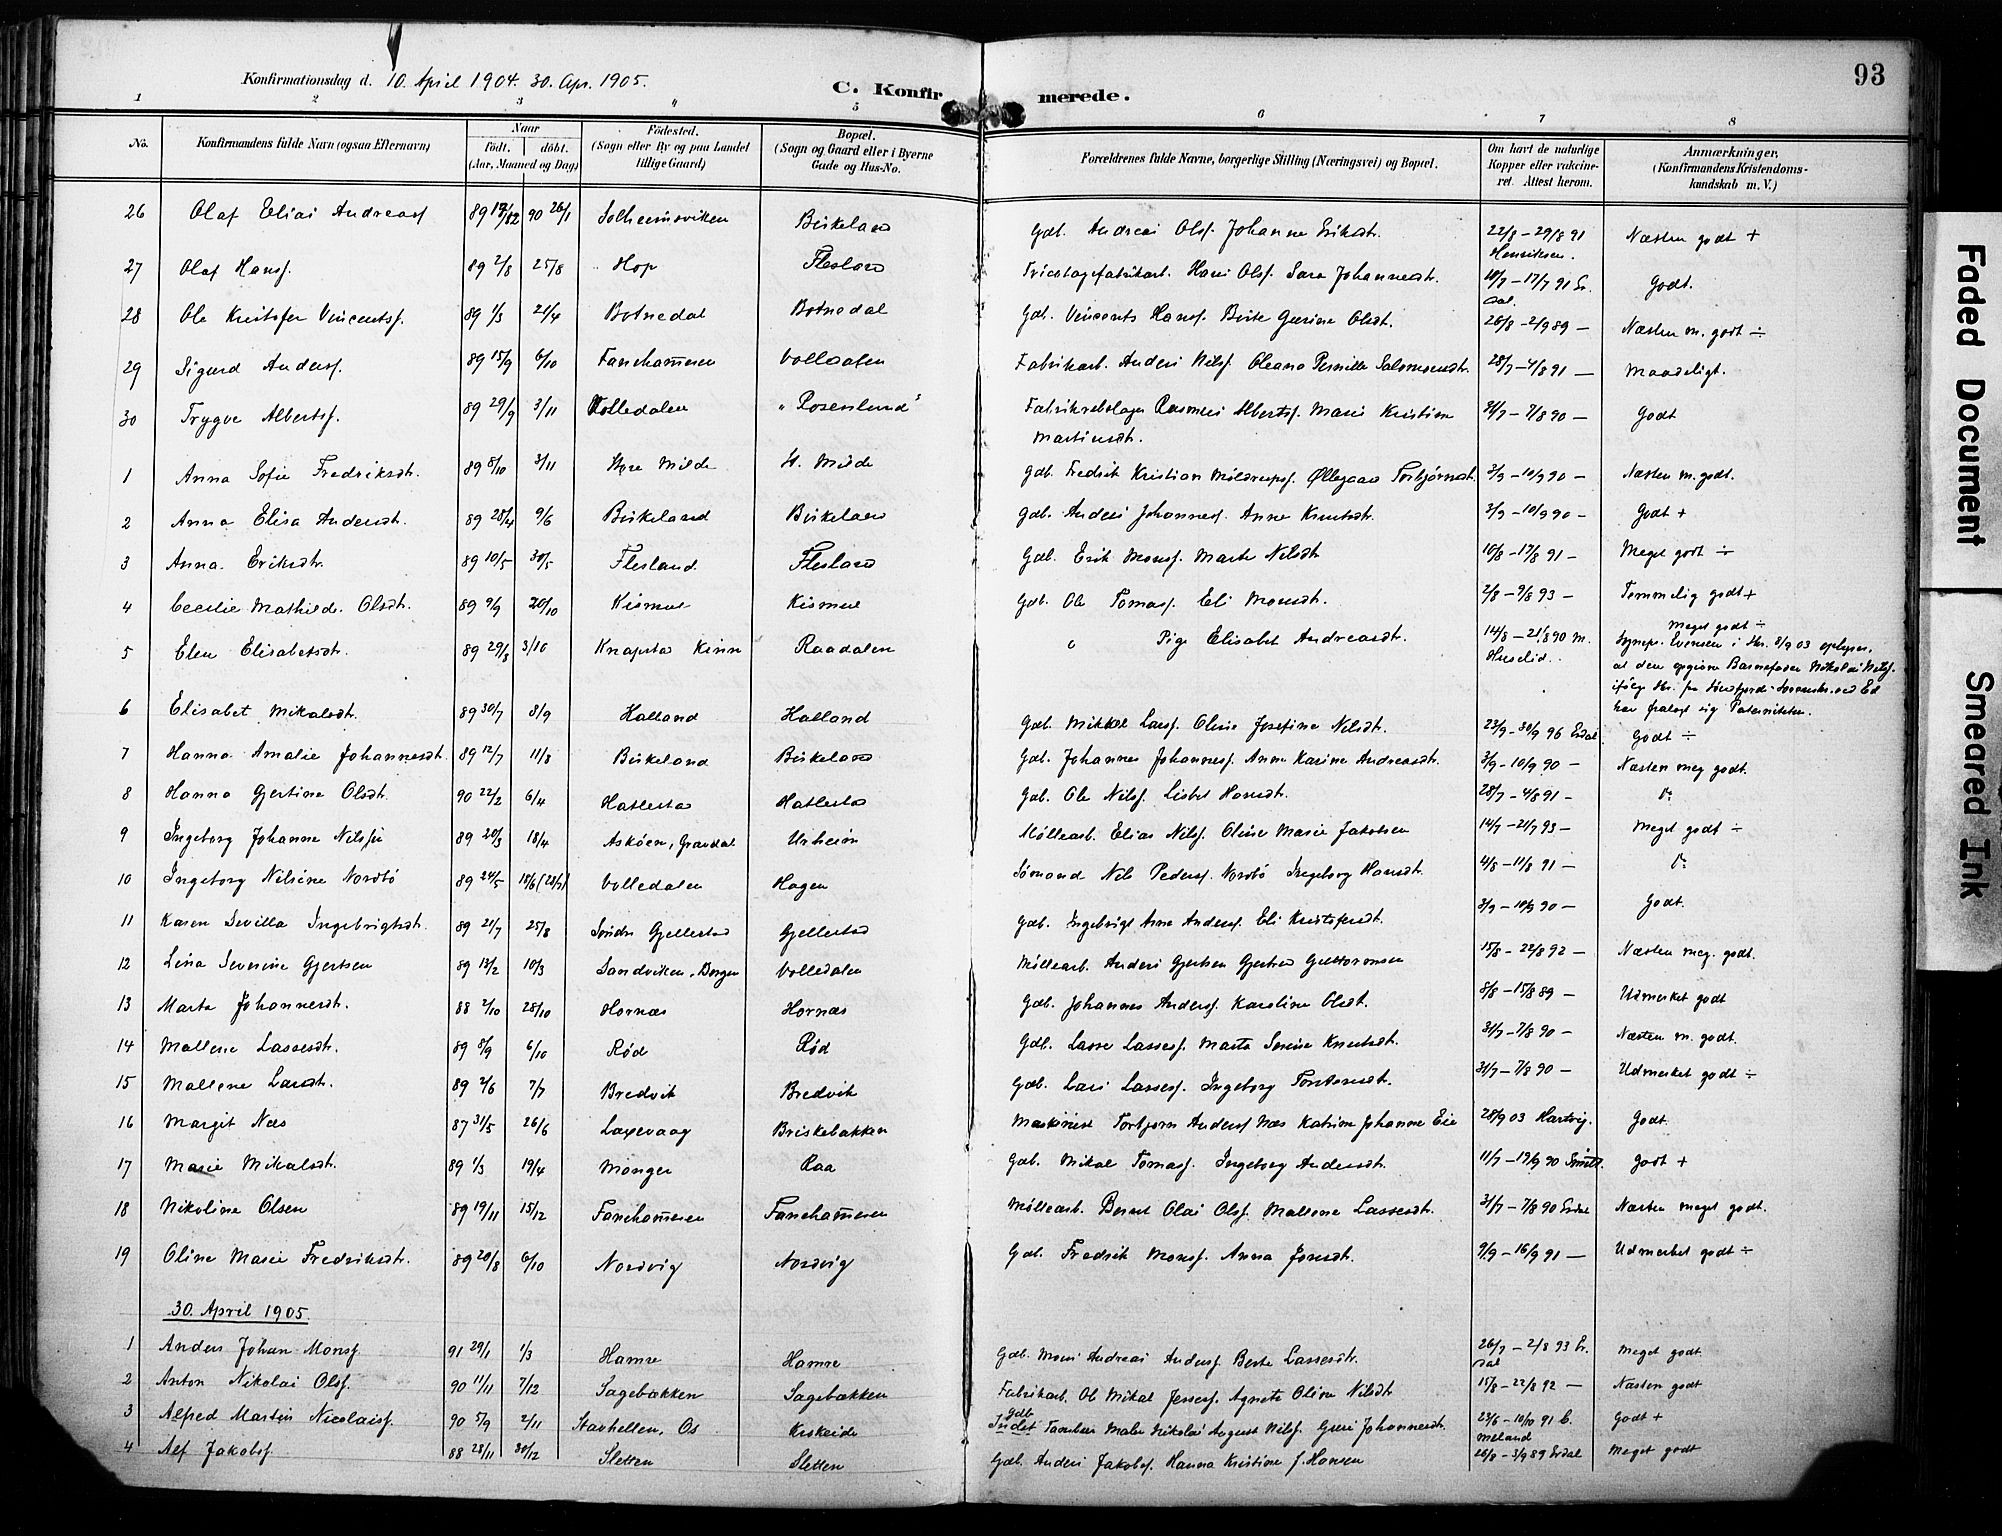 Konfirmationsdag d. 10. April 1904. 30. Apr. 1905.
C. Konfirmerede.
93
1 2 3 4 5 6 7 8
No. Konfirmandens fulde Navn (ogsaa Efternavn) Naar født. døbt. (Aar, Maaned og Dag) Fødested. (Sogn eller By og paa Landet tillige Gaard) Bopæl. (Sogn og Gaard eller i Byerne Gade og Hus-No. Forældrenes fulde Navne, borgerlige Stilling (Næringsvei) og Bopæl. Om havt de naturlige Kopper eller vakcineret. Attest herom. Anmærkninger. (Konfirmandens Kristendomskundskab m. V.)
26 Olaf Elias Andreasf 90 26/1 Solheimsviken Birkeland Gdb. Andreas Olsf. Johanne Eriksdtr. 22/8 – 29/8 91 Henriksen. Næsten godt +
27 Olaf Hansf. 89 2/8 25/8 Hop Flesland Tricotagefabrikarb. Hans Olsf. Sara Johannesdtr. 10/7 – 17/7 91 Erdal. Godt.
28 Ole Kristofer Vincentsf. 89 1/3 21/4 Botnedal Botnedal Gdb. Vincents Hansf. Berte Gurine Olsdt. 26/8 – 2/9 89 – Næsten m. godt ÷
29 Sigurd Andersf. 89 15/9 6/10 Fanehammeren Volledalen Fabrikarb. Anders Nilsf. Oleana Pernille Salomonsdtr. 28/7 – 4/8 91 — Maadeligt.
30 Trygve Albertsf. 89 29/9 3/11 Volledalen "Rosenlund" Rasmus Albertsf. Marie Kristine Martinsdtr. 31/7 – 7/8 90 – Godt
1 Anna Sofie Fredriksdtr. 89 8/10 3/11 Store Milde St. Milde Gdb. Fredrik Kristian Mildrupsf. Øllegaard Torbjørnsdt. 3/9 – 10/9 90 – Næsten m. godt.
2 Anna Elisa Andersdt. 89 28/4 9/6 Birkeland Birkeland Gdb. Anders Johannesf. Anna Knutsdtr. 3/9 – 10/9 90 – Godt +
3 Anna Eriksdtr. 89 10/5 30/5 Flesland. Flesland Gdb. Erik Monsf. Marte Nilsdtr 10/8 – 17/8 91 – Meget godt ÷
4 Cecilie Mathilde Olsdtr. 89 9/9 20/10 Kismul Kismul Gdb. Ole Tomasf. Eli Monsdtr. 2/8 – 9/8 93 – Temmelig godt +
5 Elen Elisabetsdtr. 89 29/3 3/10 Knapstad Kinn Raadalen Pige Elisabet Andreasdtr. 14/8 – 21/8 90 m. Huselid. Meget godt ÷
Sognepr. Evensen i Skr. 8/9 03 oplyser,
at den opgivne Barnefader Nikolai Nilsf.
ifølge Skr. fra
har fralagt sig Paterniteten.
6 Elisabet Mikalsdtr. 89 30/7 8/9 Halland Halland Gdb. Mikkel Larsf. Oline Josefine Nilsdt. 23/9 – 30/9 96 Erdal. Godt ÷
7 Hanna Amalie Johannesdt. 89 12/7 11/8 Birkeland Birkeland Gdb. Johannes Johannesf. Anna Karine Andreasdtr. 3/9 – 10/9 90 – Næsten meg godt.
8 Hanna Gjertine Olsdt. 90 22/2 6/4 Hatlestad Hatlestad Gdb. Ole Nilsf. Lisbet Hansdtr. 28/7 – 4/8 91 – do
9 Ingeborg Johanne Nilssen 89 20/3 18/4 Askøen, Gravdal Urheim Møllearb. Elias Nilsf. Oline Marie Jakobsen 14/7 – 21/7 93 – Meget godt ÷
10 Ingeborg Nilsine Nordbø 89 24/5 18/6 Volledalen Hagen Sømand Nils Pedersf. Nordbø Ingeborg Hansdtr. 4/8 – 11/8 91 – do
11 Karen Sevilla Ingebrigtsdt. 89 21/7 25/8 Søndre Gjellestad Gjellestad Gdb. Ingebrigt Arne Andersf. Eli Kristofersdt. 3/9 – 10/9 90 – Godt.
12 Lina Severine Gjertsen 89 13/2 10/3 Sandviken, Bergen Volledalen Møllearb. Anders Gjertsen Gjertrud Guttormsen 15/8 – 22/8 92 – Næsten meg. godt.
13 Marta Johannesdt. 88 2/10 28/10 Hornæs Hornæs Gdb. Johannes Andersf. Karoline Olsdt. 8/8 – 15/8 89 – Udmerket godt
14 Mallene Lassesdt. 89 8/9 6/10 Rød Rød Gdb. Lasse Lassesf. Marta Serine Knutsdt. 31/7 – 7/8 90 – Næsten m. godt.
15 Mallene Larsdt. 89 2/6 7/7 Bredvik Bredvik Gdb. Lars Lassesf. Ingeborg Torstensdt. 31/7 – 7/8 90 – Udmerket godt ÷
16 Margit Næs 87 31/5 26/6 Laxevaag Briskebakken Maskinist Torbjørn Andersf Næs Katrine Johanne Eie 28/9 03 Hartvig. Godt
17 Marie Mikalsdt. 89 1/3 19/4 Monger Raa Gdb. Mikal Tomasf. Ingeborg Andersdt. Godt +
18 Nikoline Olsen 89 19/11 15/12 Fanehammeren Fanehammeren Møllearb. Bernt Olai Olsf. Mallene Lassesdt. 31/7 – 7/8 90 Erdal Næsten meget godt.
19 Oline Marie Fredriksdt. 89 20/8 6/10 Nordvig Nordvig Gdb. Fredrik Monsf. Anna Jonsdt. 9/9 – 16/9 91 — Udmerket godt ÷
30. April 1905
1 Anders Johan Monsf 91 29/1 1/3 Hamre Hamre Gdb. Mons Andreas Andersf. Berte Lassesdtr. 26/7 – 2/8 93 Erdal Meget godt
2 Anton Nikolai Olsf. 90 11/11 7/12 Sagebækken Sagebækken Fabrikarb. Ole Mikal Jensesf. Agnete Oline Nilsdt 15/8 – 22/8 92 — Næsten godt
3 Alfred Martin Nicolaisf. 90 5/9 2/11 Stavhellen, Os Krokeide Gdb Maler Nikolai August Nilsf. Guri Johannesdt. 23/6 – 10/10 91 C. Meland Godt +
4 Alf Jakobsf. 88 28/11 30/12 Sletten Sletten Gdb. Anders Jakobsf. Hanna Kristine J. Hansen 26/8 – 3/9 89 Erdal Meget godt
Faded Document
Smeared Ink